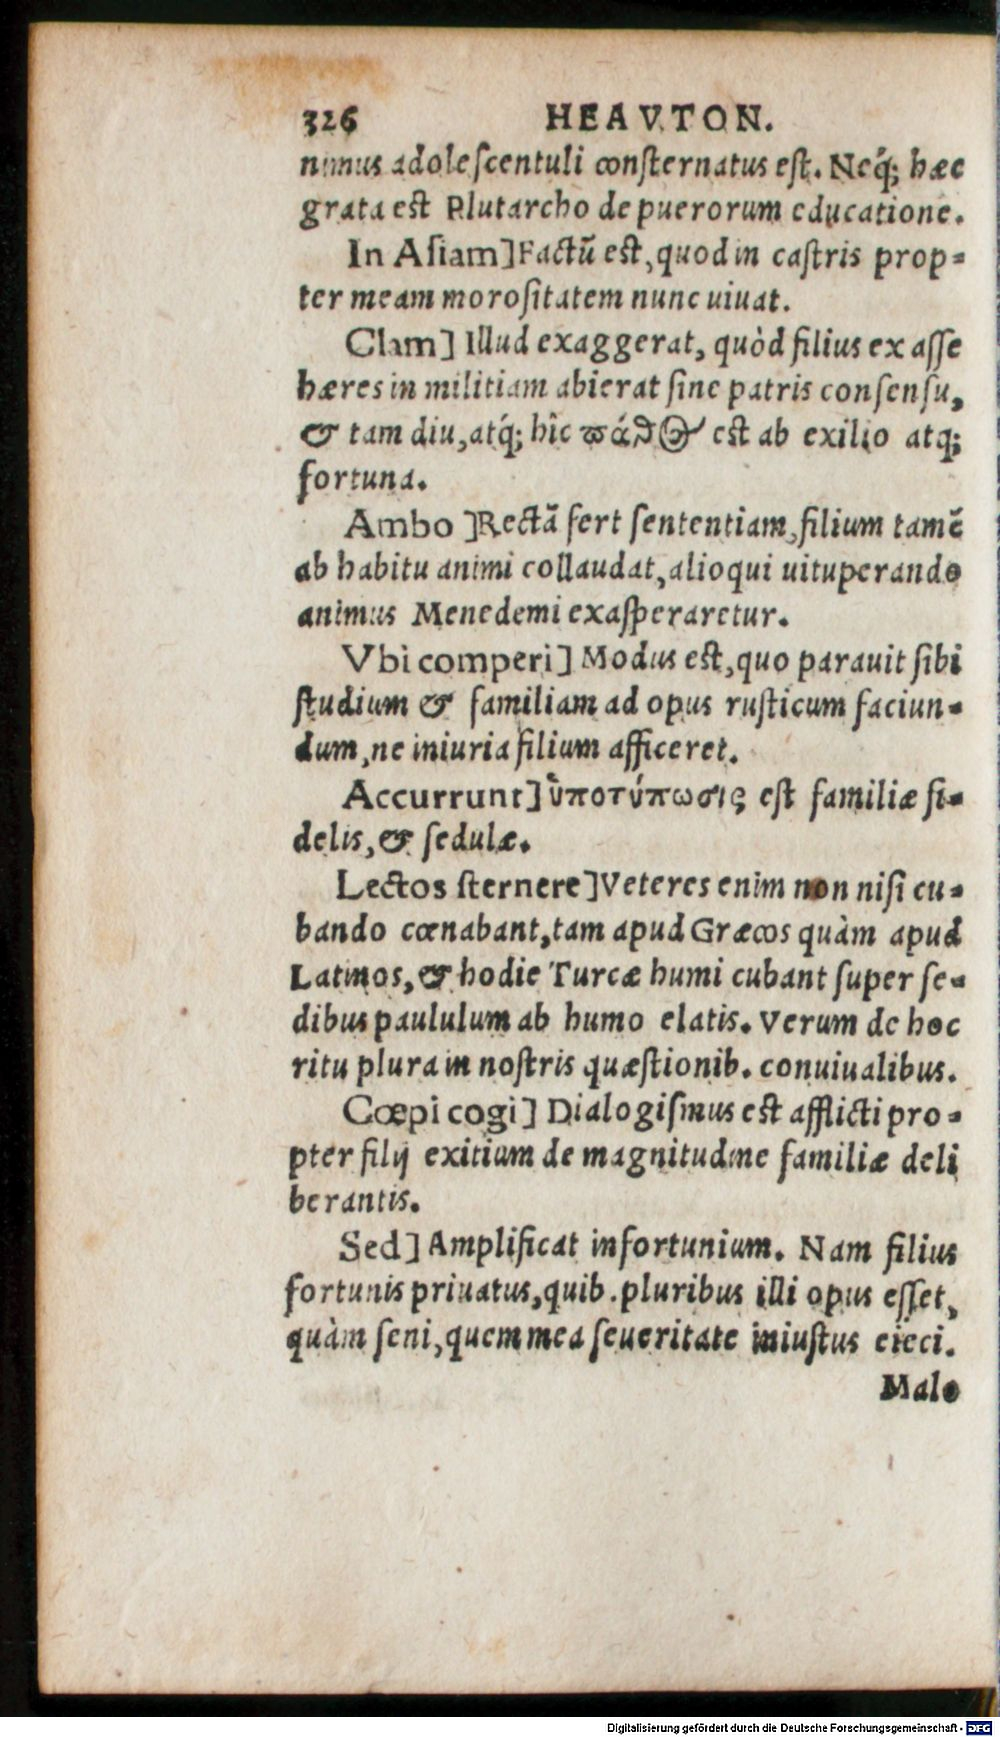 326 HEAVTON.
nimus adolescentuli consternatus est. Neq́; hæc
grata est Plutarcho de puerorum educatione.
In Asiam] Factū est, quod in castris prop-
ter meam morositatem nunc uiuat.
Clam] Illud exaggerat, quòd filius ex asse
hæres in militiam abierat sine patris consensu,
& tam diu, atq́; hîc πάθος est ab exilio atq́;
fortuna.
Ambo] Rectā fert sententiam, filium tamē
ab habitu animi collaudat, alioqui uituperando
animus Menedemi exasperaretur.
Vbi comperi] Modus est, quo parauit sibi
studium & familiam ad opus rusticum faciun-
dum, ne iniuria filium afficeret.
Accurrunt] ὑποτύπωσις est familiæ fi-
delis, & sedulæ.
Lectos sternere] Veteres enim non nisi cu-
bando cœnabant, tam apud Græcos quàm apud
Latinos, & hodie Turcæ humi cubant super se-
dibus paululum ab humo elatis. Verum de hoc
ritu plura in nostris quæstionib. conuiualibus.
Cœpi cogi] Dialogismus est afflicti pro-
pter filij exitium de magnitudine familiæ deli
berantis.
Sed] Amplificat infortunium. Nam filius
fortunis priuatus, quib. pluribus illi opus esset,
quàm seni, quem mea seueritate iniustus eieci.
Male
Digitalisierung gefördert durch die Deutsche Forschungsgemeinschaft - DFG